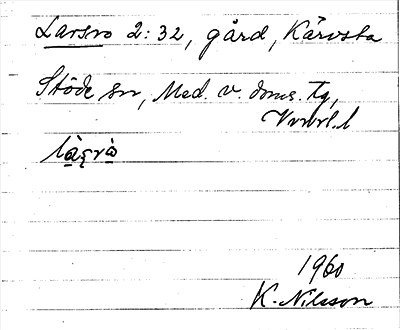 Larsro 2:32, gård, Kärvsta
Stöde sn, Med. v. doms. tg,
Vnrrl. l
1960
K. Nilsson